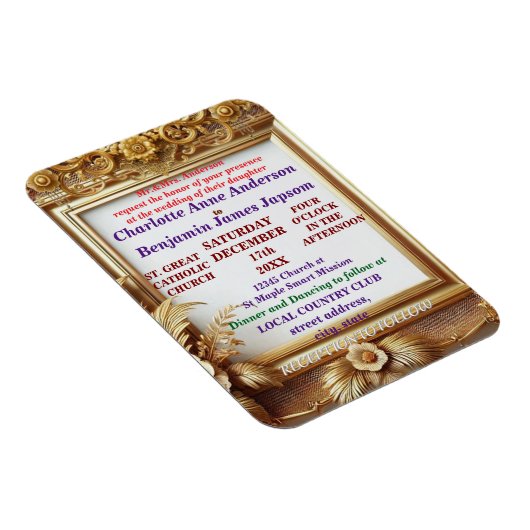 Mr.&Mrs. Anderson
request the honor of your presence
at the wedding of their daughter
Charlotte Anne Anderson
to
Benjamin James Japsom
ST. GREAT
CATHOLIC
CHURCH
SATURDAY
DECEMBER
17th
20XX
FOUR
O'CLOCK
IN THE
AFTERNOON
12345 Church at
St Maple Smart Mission
Dinner and Dancing to follow at
LOCAL COUNTRY CLUB
street address,
city, state
RECEPTION TO FOLLOW